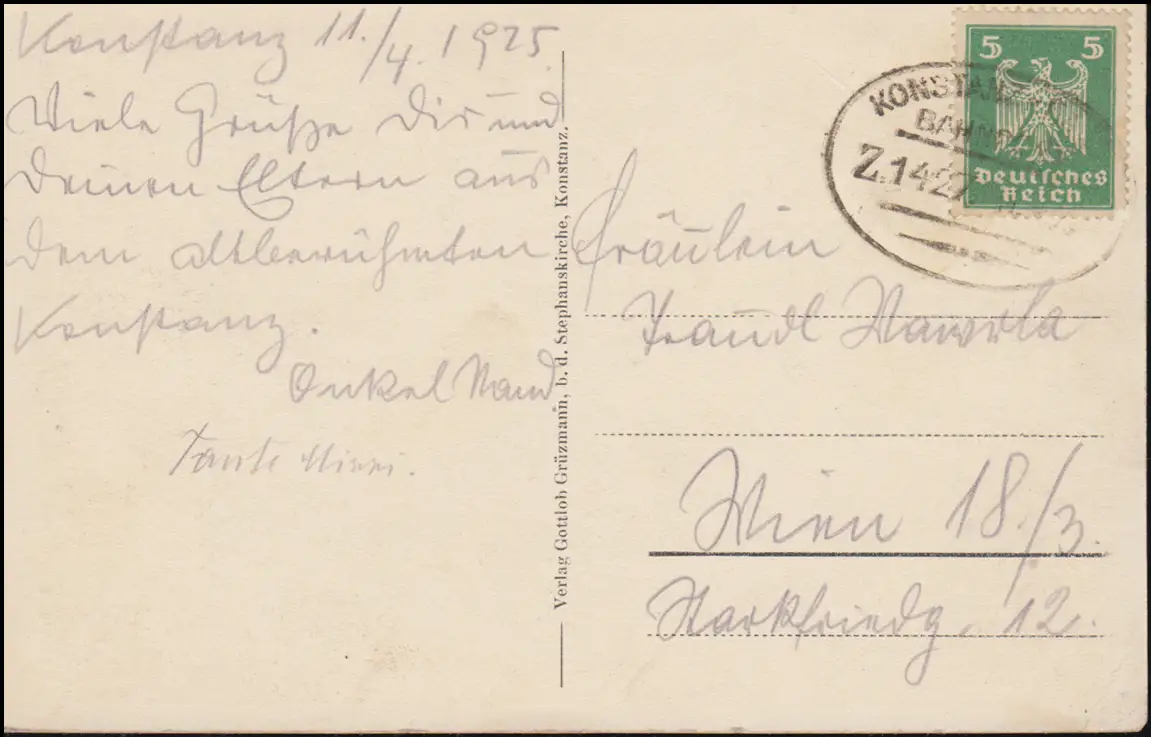 Konstanz 11./4. 1925.
Viele Grüße Dir und
Deinen Eltern aus
dem altberühmten
Konstanz.
Onkel Nand
Tante Minni.
Verlag Gottlob Grüzmann, b. d. Stephanskirche, Konstanz.
KONSTAN
BAHNP
Z.1427
5 5
Deutsches
Reich
Fräulein
Traudl Wawrla
Wien 18./3.
Starkfriedg. 12.